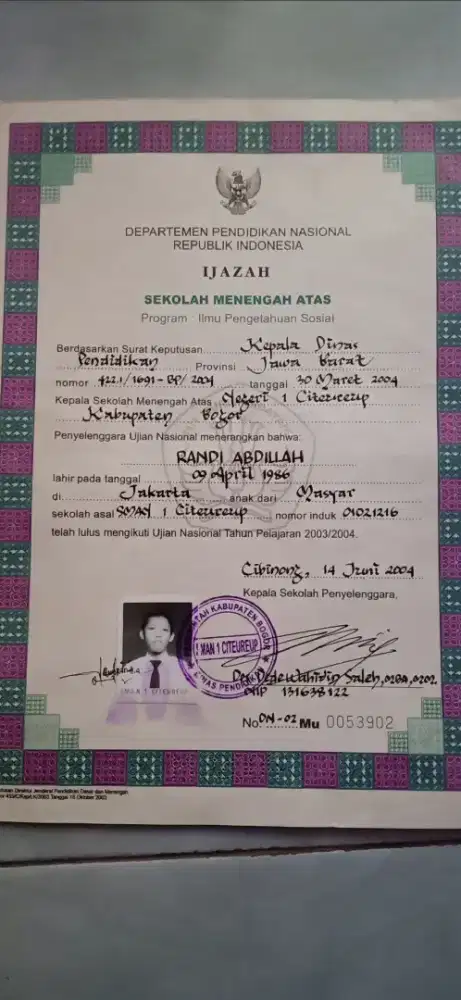 DEPARTEMEN PENDIDIKAN NASIONAL
REPUBLIK INDONESIA
IJAZAH
SEKOLAH MENENGAH ATAS
Program : Ilmu Pengetahuan Sosial
Berdasarkan Surat Keputusan Kepala Dinas
Pendidikan Provinsi Jawa Barat
nomor 422.1/1691-BP/2004 tanggal 30 Maret 2004
Kepala Sekolah Menengah Atas Negeri 1 Citeureup
Kabupaten Bogor
Penyelenggara Ujian Nasional menerangkan bahwa:
RANDI ABDILLAH
lahir pada tanggal 09 April 1986
di Jakarta anak dari Masyar
sekolah asal SMAN 1 Citeureup nomor induk 01021216
telah lulus mengikuti Ujian Nasional Tahun Pelajaran 2003/2004.
Cibinong, 14 Juni 2004
Kepala Sekolah Penyelenggara,
KABUPATEN BOGOR
MAN 1 CITEUREUP
SMAN 1 CITEUREUP
Saleh,
NIP 131638122
No. DN-02 Mu 0053902
Direktur Jenderal Pendidikan Dasar dan Menengah
Tanggal 15 Oktober 2003